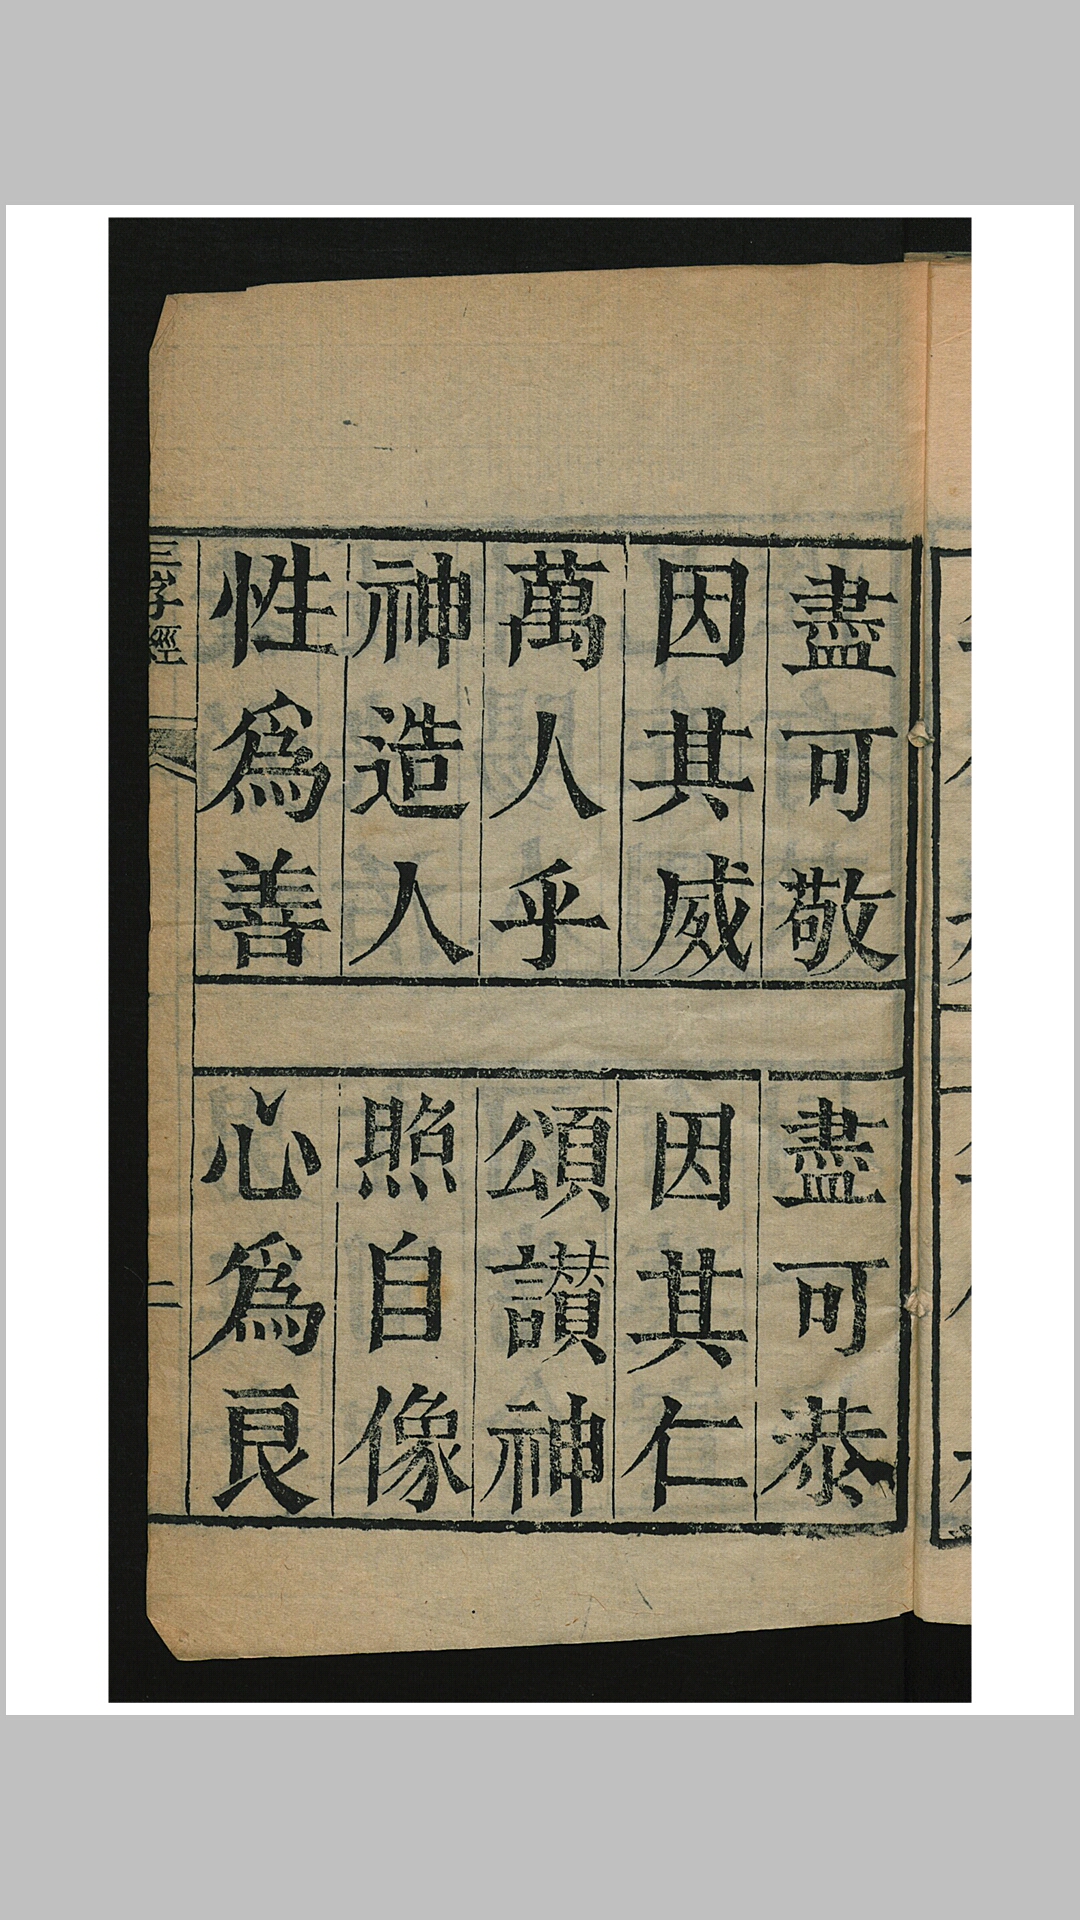 盡可敬
盡可恭
因其威
因其仁
萬人乎
頌讃神
神造人
照自像
性爲善
心爲良
三字經
二